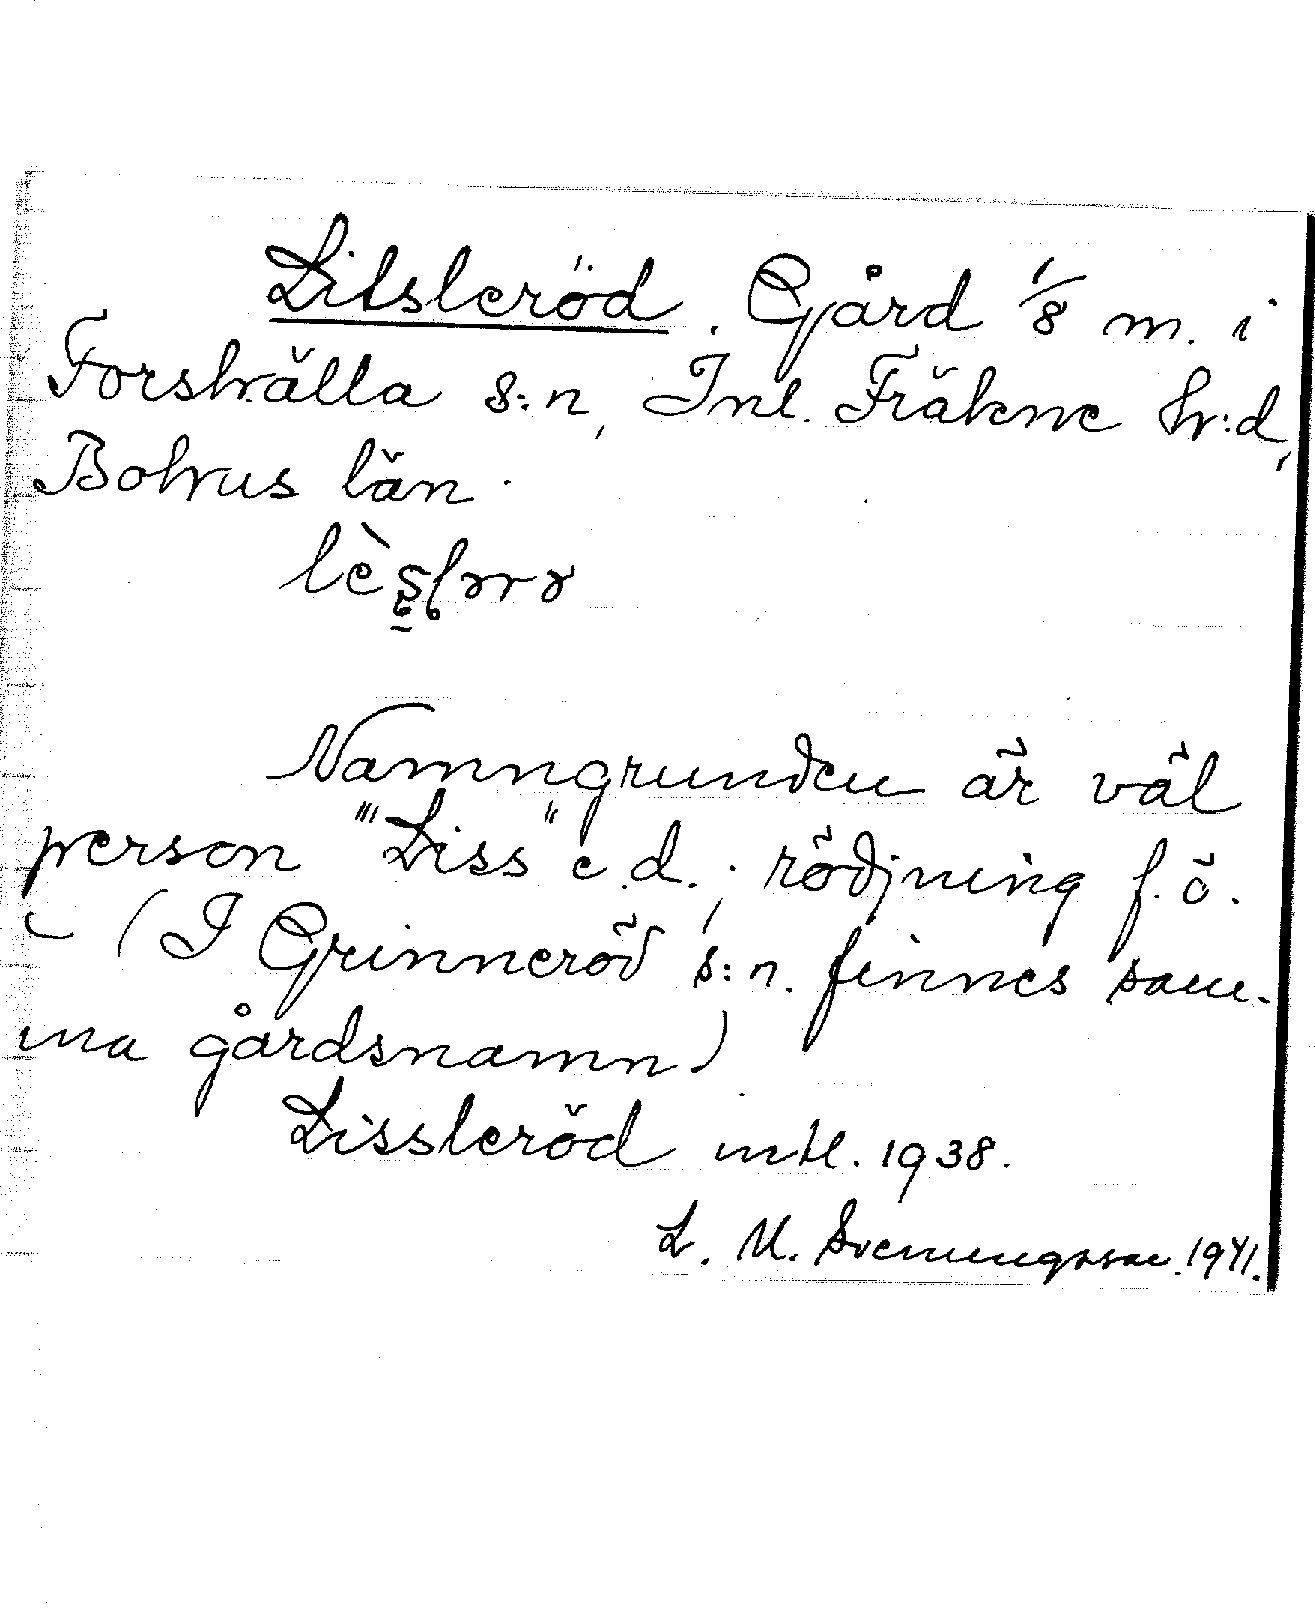 Litsleröd. Gård 1/8 m. i
Forshälla s:n, Inl. Fräkne hr:d,
Bohus län.
Namngrunden är väl
person "Liss" e.d.; rödjning f.ö.
– (I Grinneröd s:n. finnes sam-
ma gårdsnamn)
Lissleröd mtl. 1938.
L. M. Svenungsson. 1941.